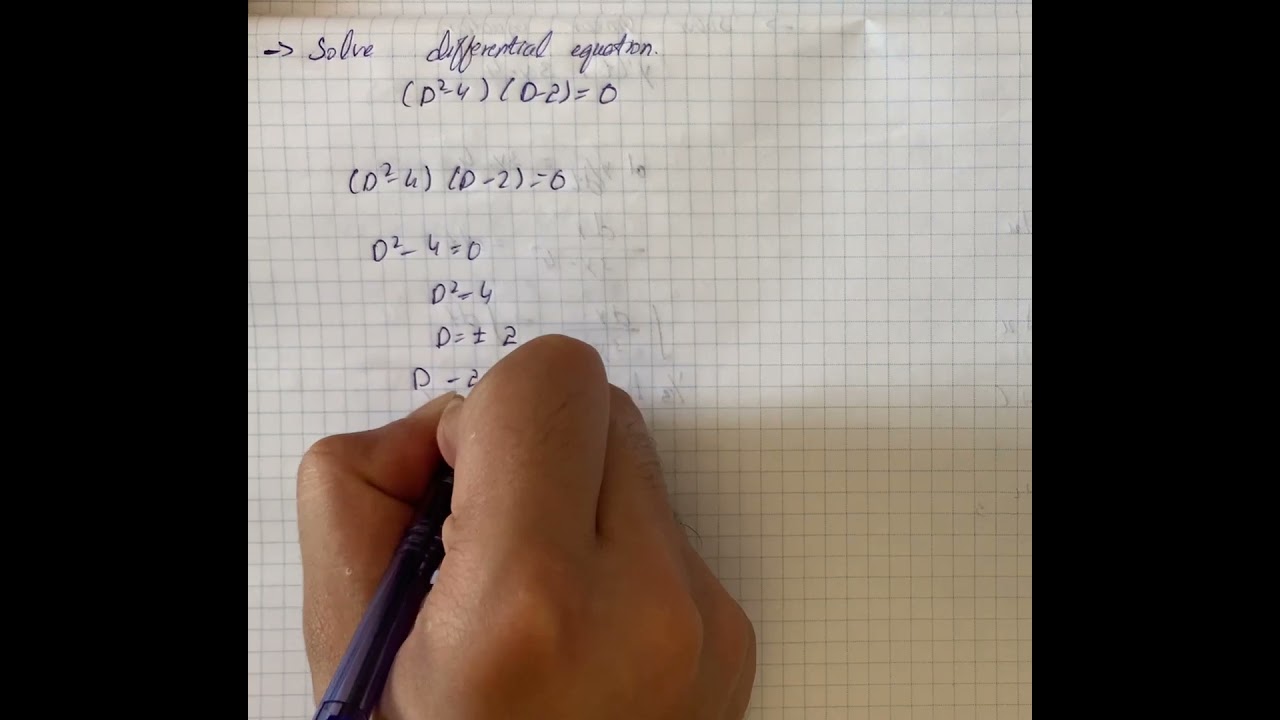 → Solve differential equation.
(D²-4) (D-2)=0
(D²-4) (D-2)=0
D²-4=0
D²=4
D=± 2
D -2